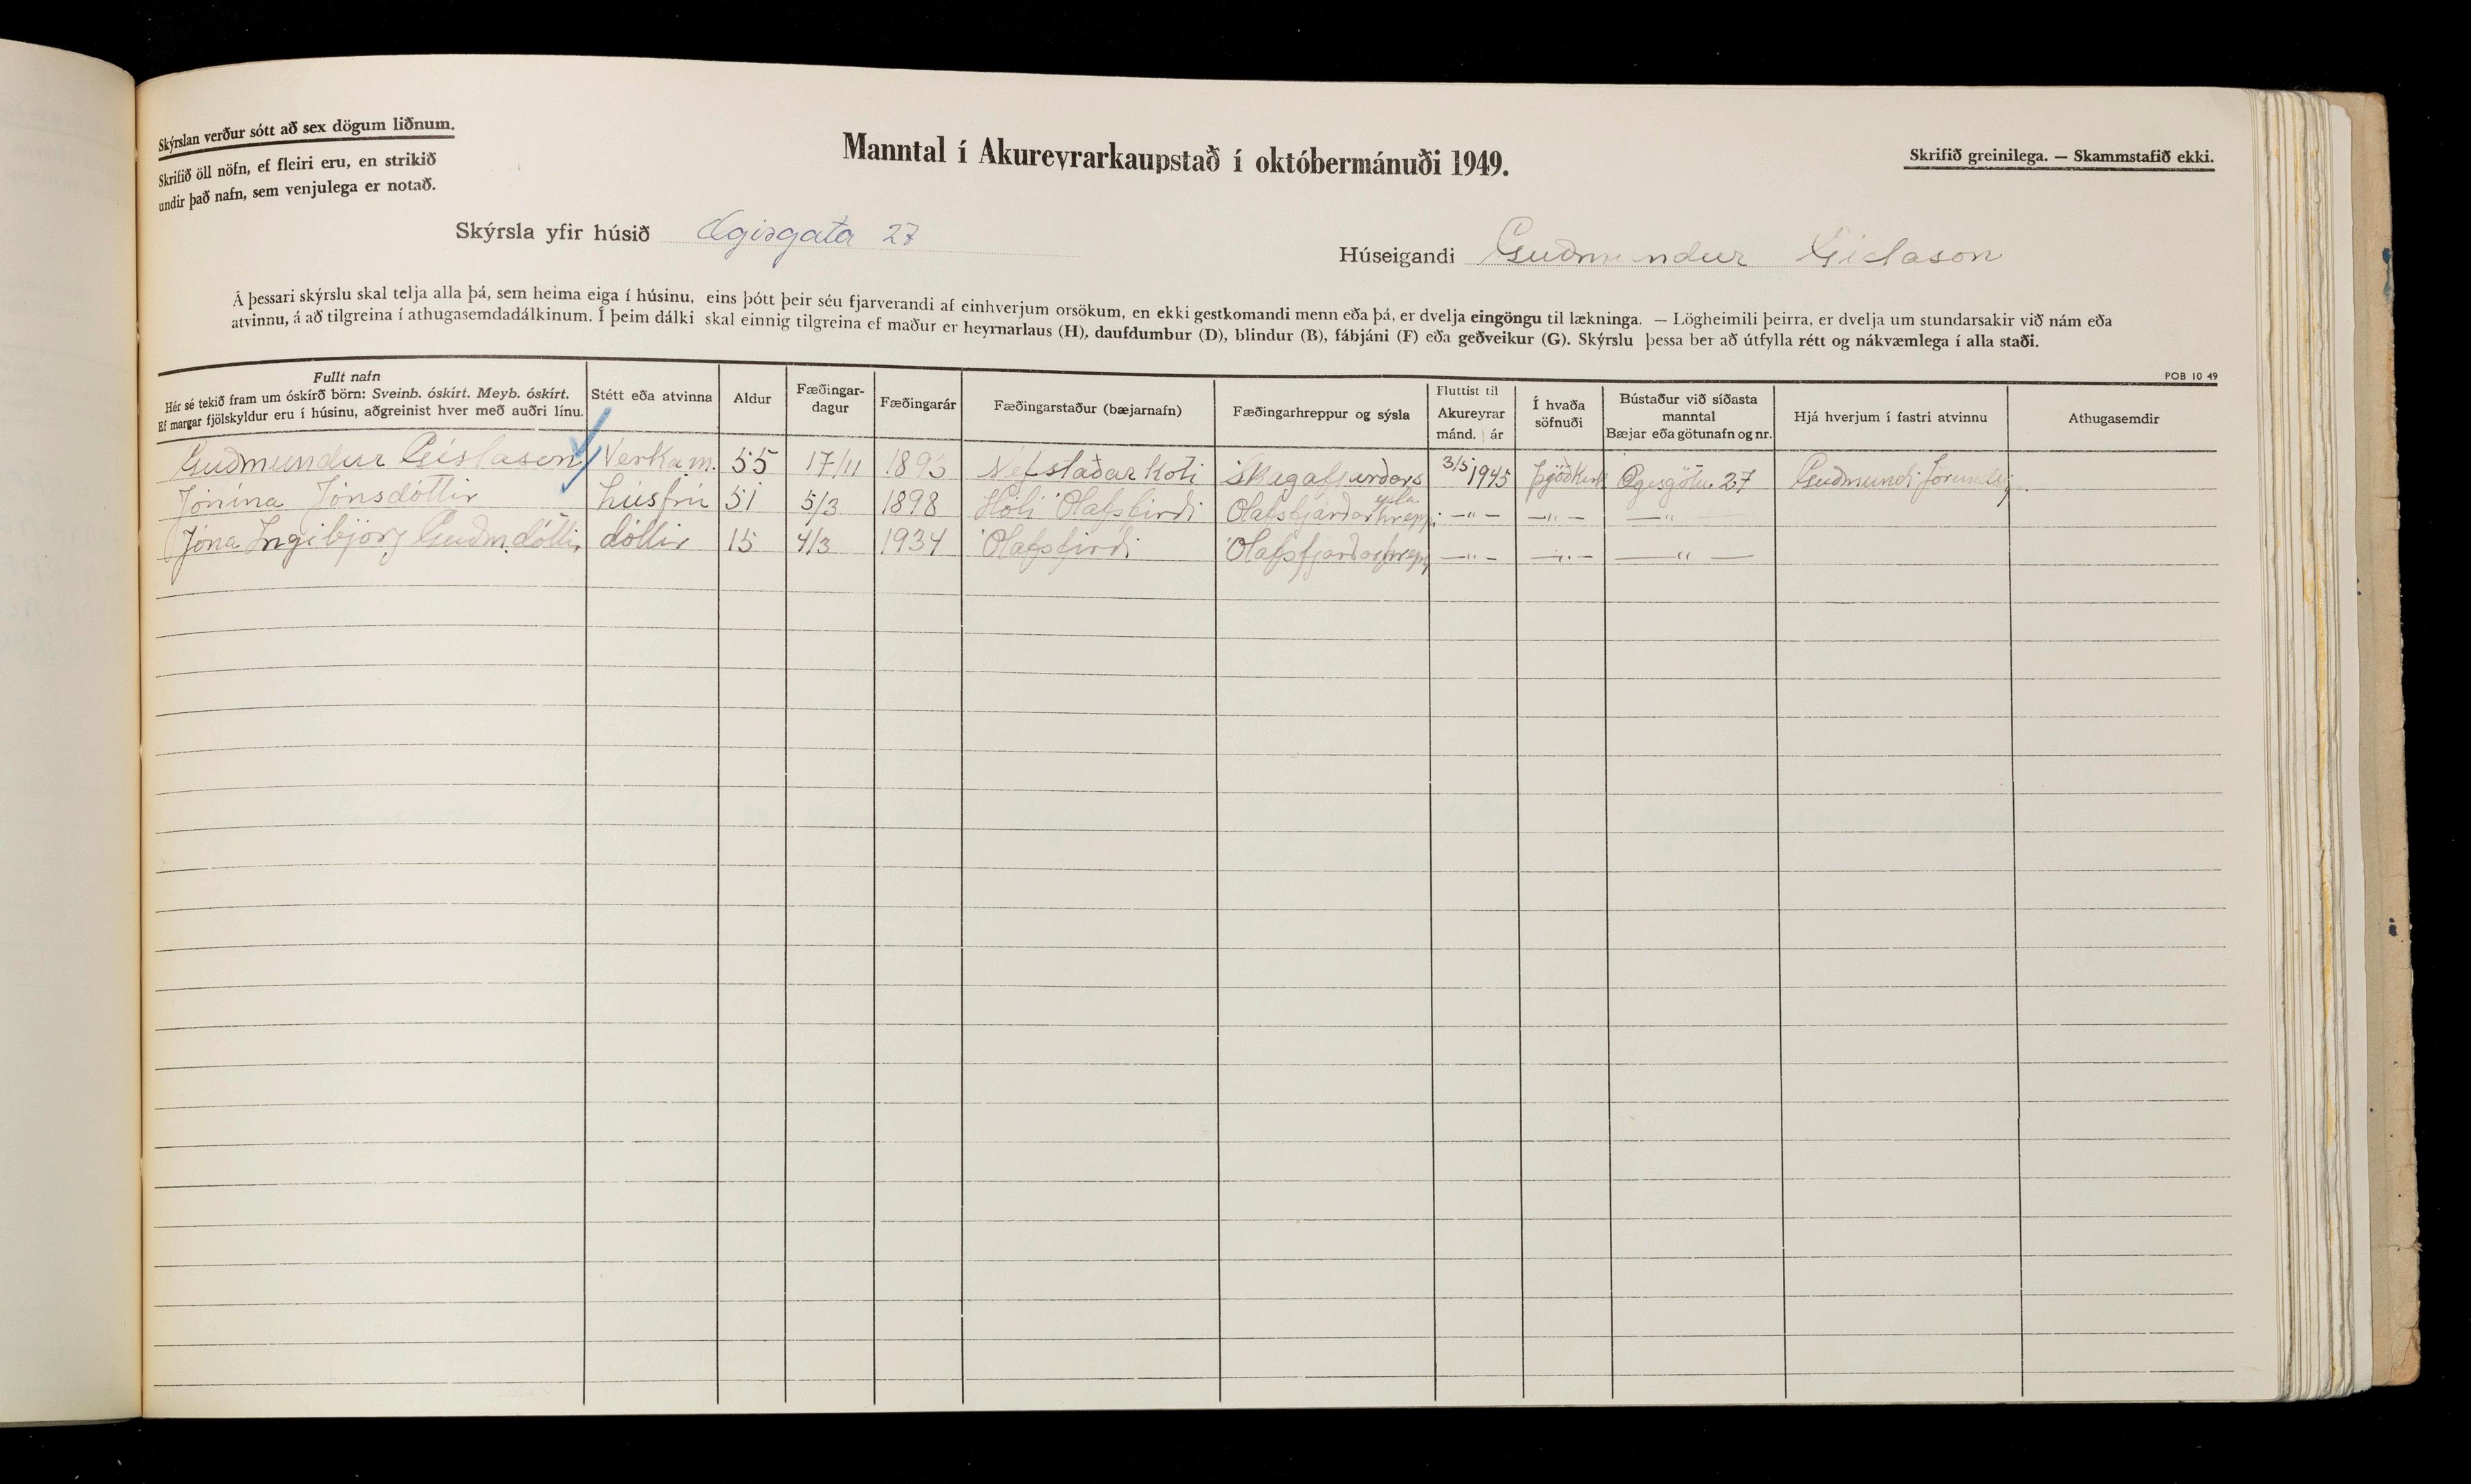 Skýrslan verður sótt að sex dögum liðnum.
Skrifið öll nöfn, ef fleiri eru, en strikið
undir það nafn, sem venjulega er notað.
Manntal í Akureyrarkaupstað í októbermánuði 1949.
Skrifið greinilega. — Skammstafið ekki.
Skýrsla yfir húsið Ægisgata 27
Húseigandi Guðmundur Gíslason
Á þessari skýrslu skal telja alla þá, sem heima eiga í húsinu, eins þótt þeir séu fjarverandi af einhverjum orsökum, en ekki gestkomandi menn eða þá, er dvelja eingöngu til lækninga. — Lögheimili þeirra, er dvelja um stundarsakir við nám eða
atvinnu, á að tilgreina í athugasemdadálkinum. Í þeim dálki skal einnig tilgreina ef maður er heyrnarlaus (H), daufdumbur (D), blindur (B), fábjáni (F) eða geðveikur (G). Skýrslu þessa ber að útfylla rétt og nákvæmlega í alla staði.
POB 10 49
Fullt nafn
Hér sé tekið fram um óskírð börn: Sveinb. óskírt. Meyb. óskírt.
Ef margar fjölskyldur eru í húsinu, aðgreinist hver með auðri línu.
Stétt eða atvinna
Aldur
Fæðingar-
dagur
Fæðingarár
Fæðingarstaður (bæjarnafn)
Fæðingarhreppur og sýsla
Fluttist til
Akureyrar
mánd. | ár
Í hvaða
söfnuði
Bústaður við síðasta
manntal
Bæjar eða götunafn og nr.
Hjá hverjum í fastri atvinnu
Athugasemdir
Guðmundur Gíslason Verkam. 55 17/11 Nefstaðarkoti Skagafjarðars ýsla. 3/5 1945 Þjóðkirk Ægisgötu 27 Guðmundi Jörundsy
Jónína Jónsdóttir húsfrú 51 5/3 1898 Hóli Ólafsfirði Ólafsfjarðarhrepp. —"— —"— —"—
Jóna Ingibjörg Guðm.dóttir dóttir 15 4/3 1934 Ólafsfirði Ólafsfjarðarhrepp —"— —"— —"—